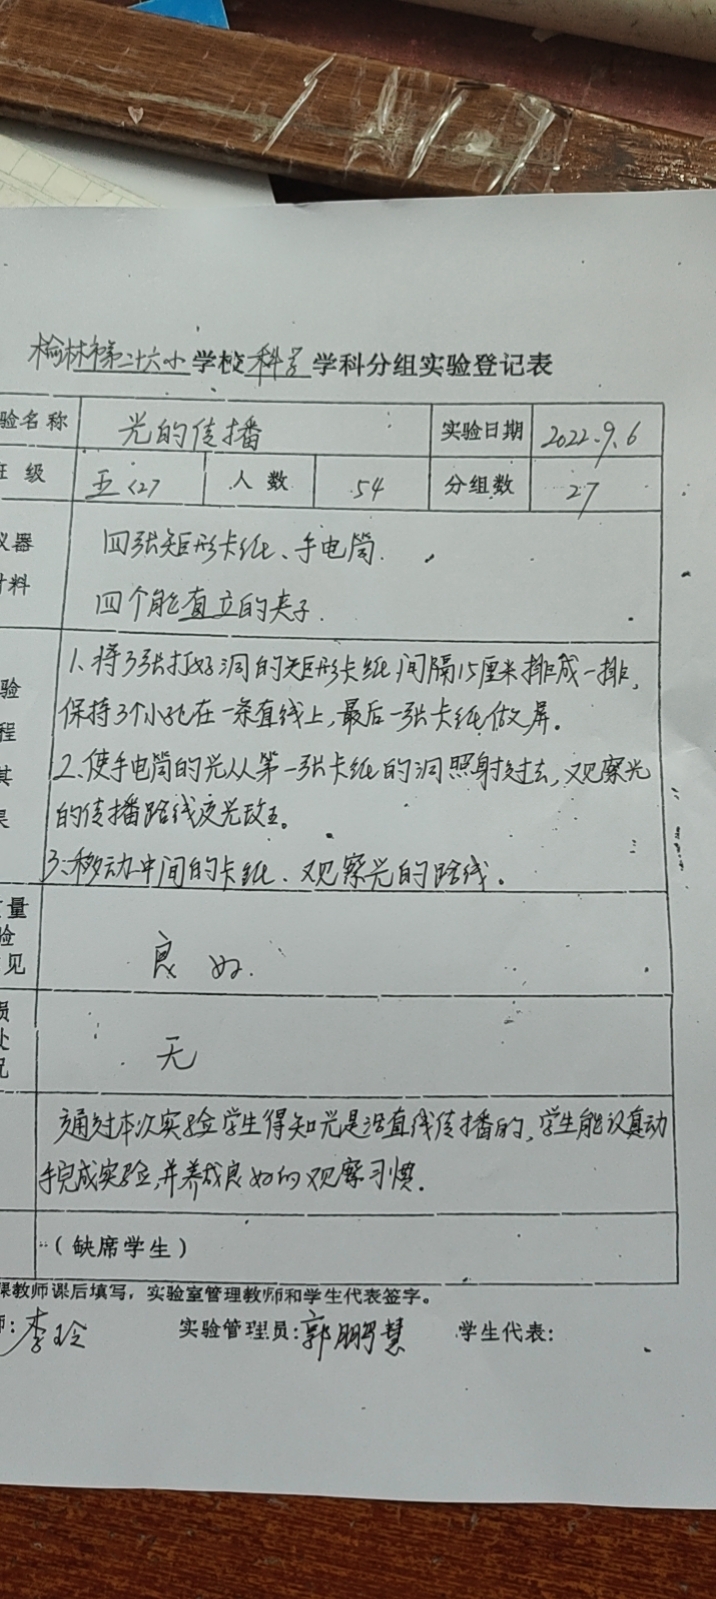 榆林市第二十六小学校科学学科分组实验登记表
验名称 光的传播 实验日期 2022.9.6
班级 五(2) 人数 54 分组数 27
仪器 四张矩形卡纸、手电筒.
材料 四个能直立的夹子.
1、将3张打好洞的矩形卡纸间隔15厘米排成一排,
验 保持3个小孔在一条直线上,最后一张卡纸做屏。
程 2、使手电筒的光从第一张卡纸的洞照射过去,观察光
其 的传播路线及光
果 3、移动中间的卡纸、观察光的路线。
量
验 良好.
见
损
处 无
况
通过本次实验学生得知光是沿直线传播的,学生能认真动
手完成实验,并养成良好的观察习惯.
(缺席学生)
课教师课后填写,实验室管理教师和学生代表签字。
师:李玲 实验管理员:郭鹏慧 学生代表: